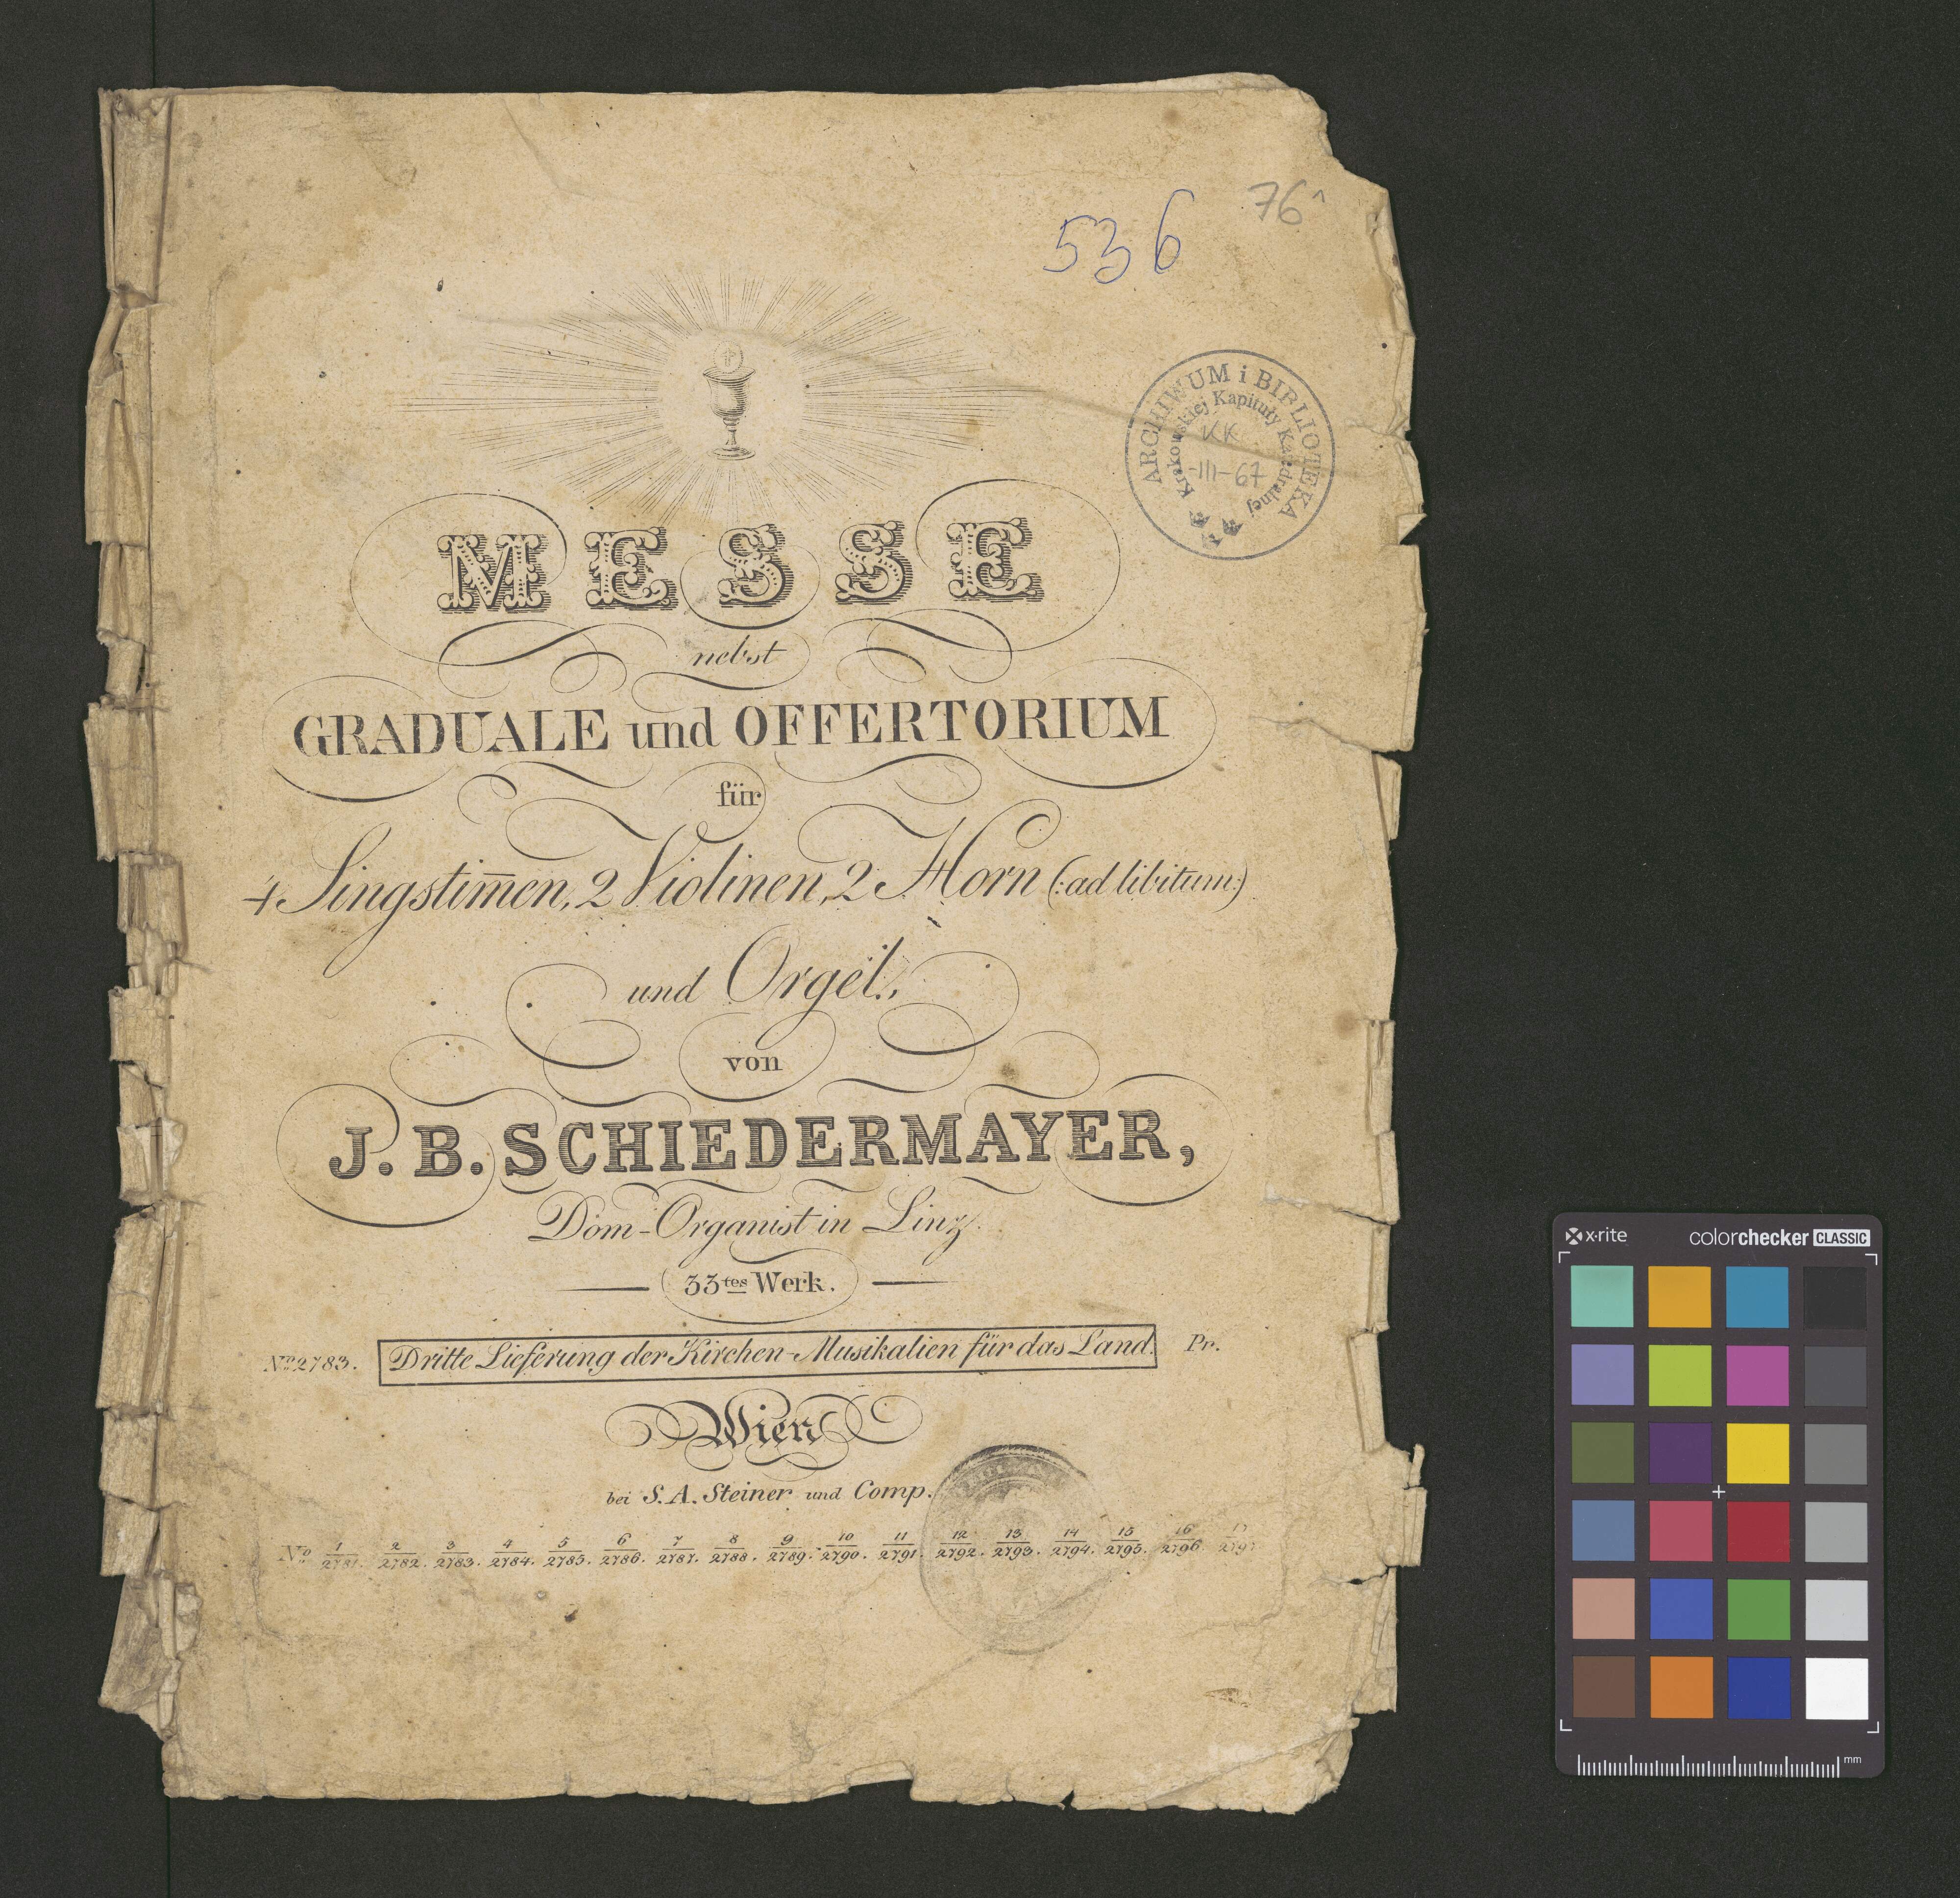 536
76^
ARCHIWUM i BIBLIOTEKA
Krakowskiej Kapituły Katedralnej
KK
-III-67
MESSE
nebst
GRADUALE und OFFERTORIUM
für
4 Singstim̄en, 2 Violinen, 2 Horn (:ad libitum:)
und Orgel,
von
J. B. SCHIEDERMAYER,
Dom-Organist in Linz.
33tes Werk.
Nro 2783. Dritte Lieferung der Kirchen-Musikalien für das Land. Pr.
Wien
bei S. A. Steiner und Comp.
No 1/2781. 2/2782. 3/2783. 4/2784. 5/2785. 6/2786. 7/2787. 8/2788. 9/2789. 10/2790. 11/2791. 12/2792. 13/2793. 14/2794. 15/2795. 16/2796.
x-rite colorchecker CLASSIC
mm